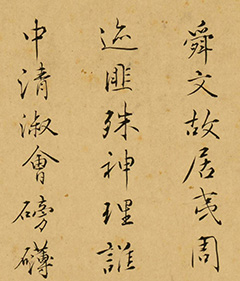 舜文故居夷周
迹匪殊神理誰
中清淑會磅礴